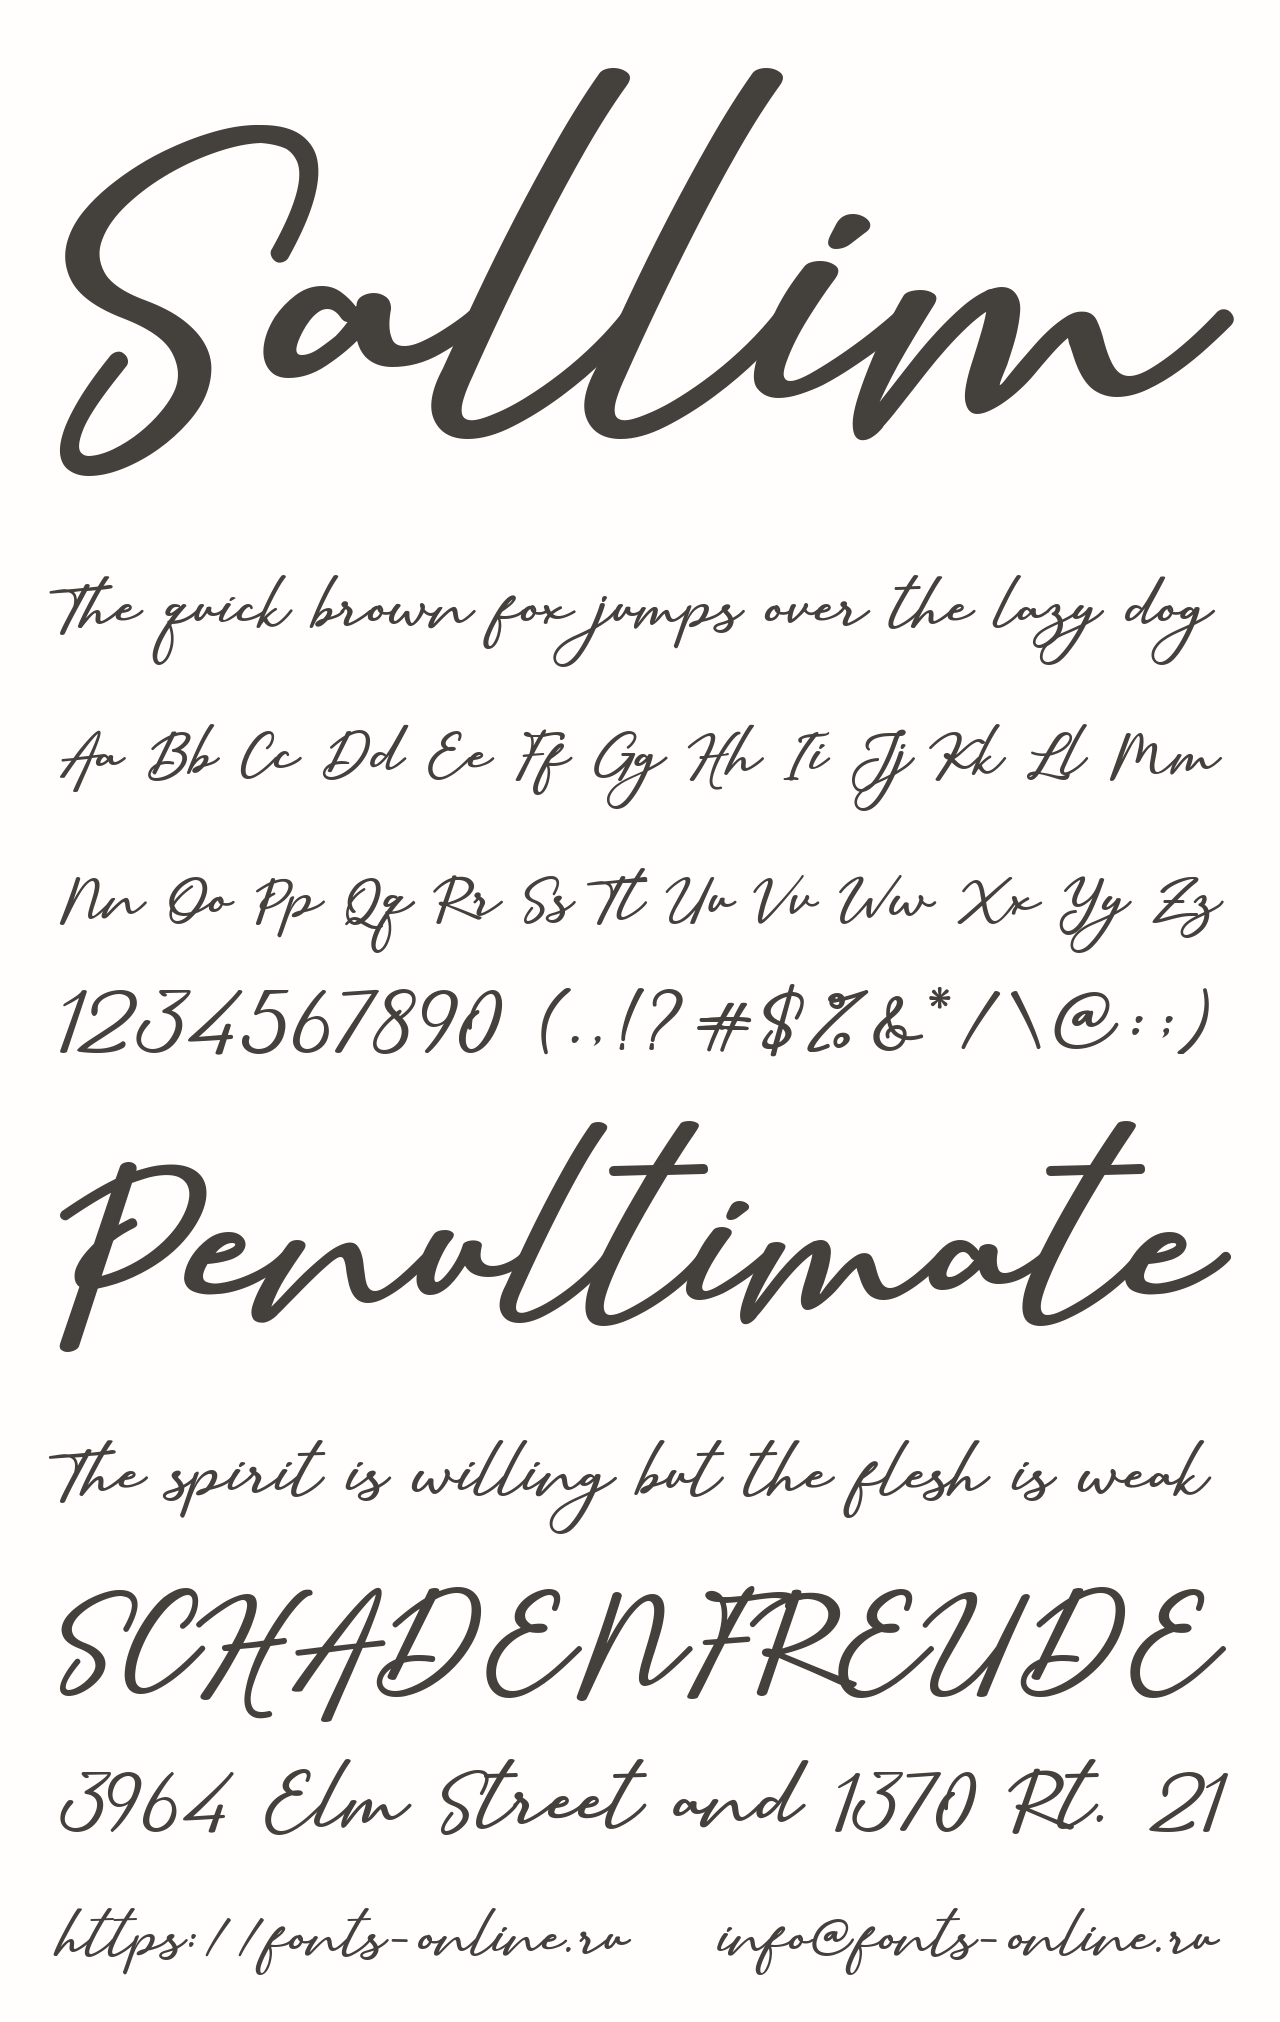 Sallim
The quick brown fox jumps over the lazy dog
Aa Bb Cc Dd Ee Ff Gg Hh Ii Jj Kk Ll Mm
Nn Oo Pp Qq Rr Ss Tt Uu Vv Ww Xx Yy Zz
1234567890 (.,!? #$%&*/\@:;)
Penultimate
The spirit is willing but the flesh is weak
SCHADENFREUDE
3964 Elm Street and 1370 Rt. 21
https://fonts-online.ru info@fonts-online.ru